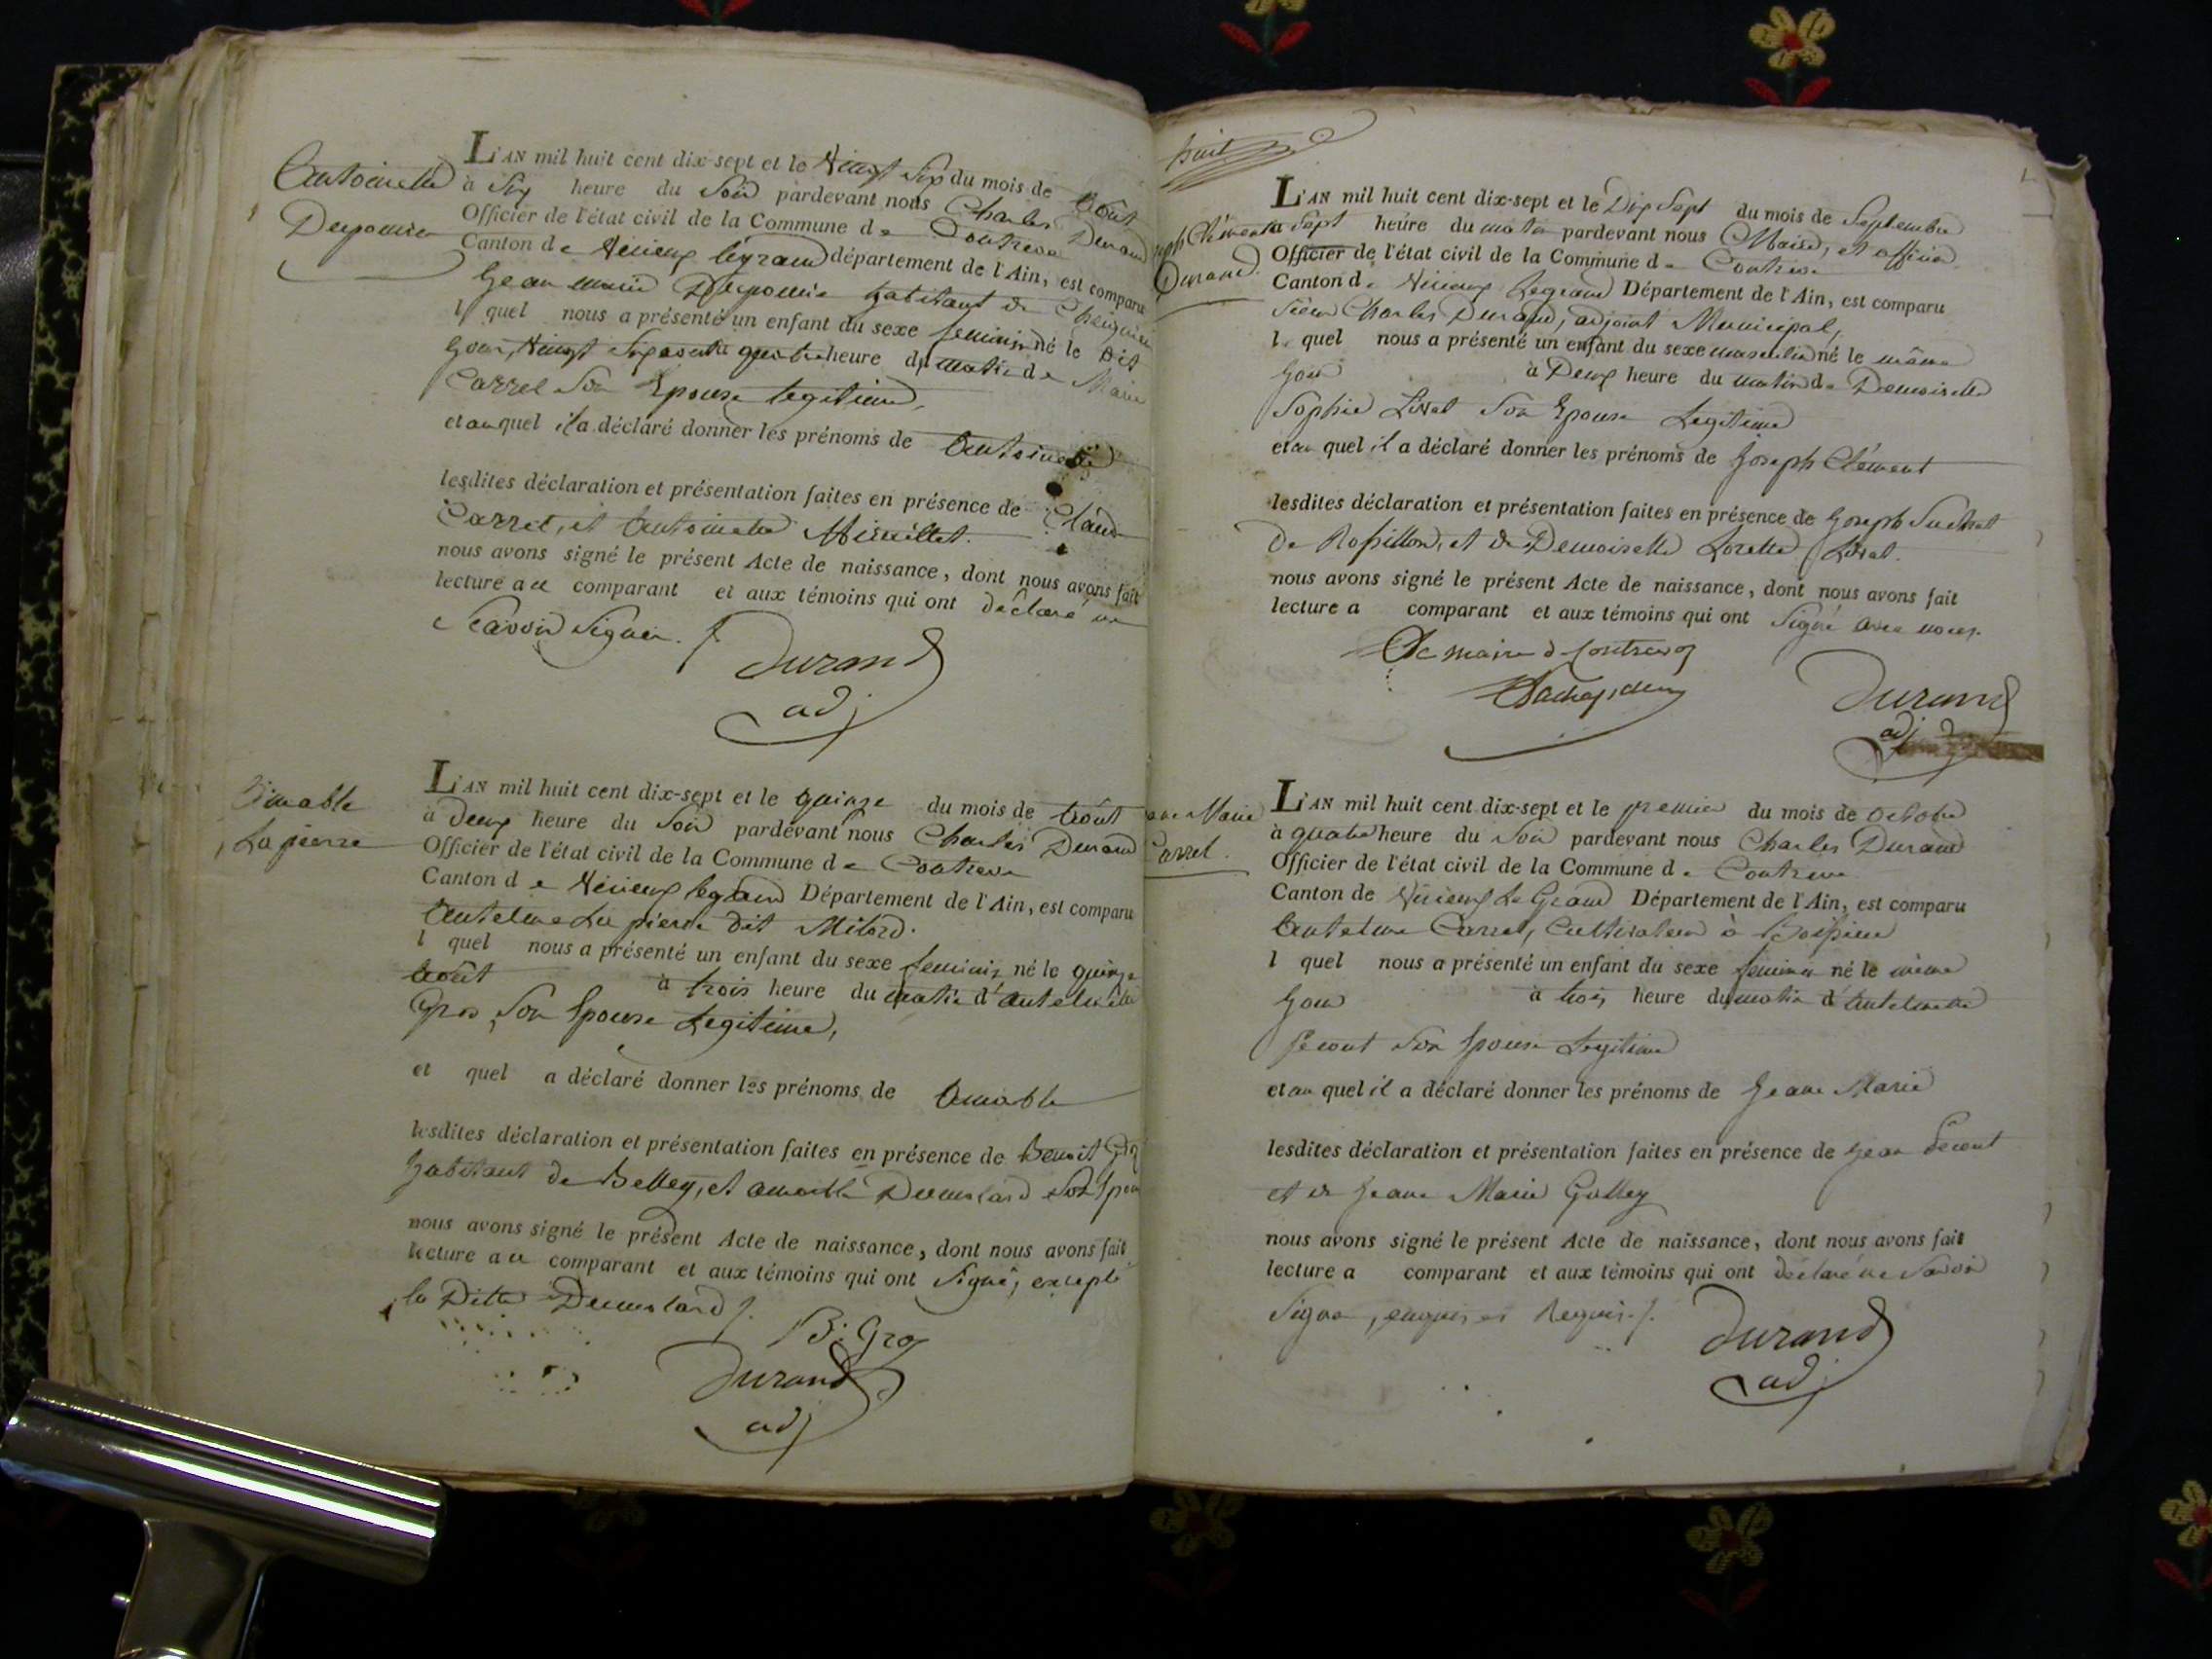 Antoinette
Depomier
L'AN mil huit cent dix-sept et le Vingt Six du mois de Août
à Six heure du Soir pardevant nous Charles Durand
Officier de l'état civil de la Commune de Contrevoz
Canton de Virieux legrand département de l'Ain, est comparu
Jean marie Depomier habitant de
lequel nous a présenté un enfant du sexe feminin né le dit
Jour, Vingt Six août à quatre heure du matin de Marie
Carrel Son Epouse legitime,
et auquel il a déclaré donner les prénoms de Antoinette
lesdites déclaration et présentation faites en présence de Claude
Carrel, et Antoinette
nous avons signé le présent Acte de naissance, dont nous avons fait
lecture au comparant et aux témoins qui ont déclaré ne
Scavoir Signer.
Durand
adj
Aimable
La pierre
L'AN mil huit cent dix-sept et le quinze du mois de Août
à deux heure du Soir pardevant nous Charles Durand
Officier de l'état civil de la Commune de Contrevoz
Canton de Virieux legrand Département de l'Ain, est comparu
Antelme La pierre dit Milord.
l quel nous a présenté un enfant du sexe feminin né le quinze
Août à trois heure du matin d'Antelmette
Gros, Son Epouse Legitime,
et quel a déclaré donner les prénoms de Amable
lesdites déclaration et présentation faites en présence de Benoit Gros
habitant de Belley, et amable Demolard Son Epouse
nous avons signé le présent Acte de naissance, dont nous avons fait
lecture au comparant et aux témoins qui ont Signé, excepté
la Ditte Demolard
B. Gros
Durand
adj
huit
Joseph Clément
Durand.
L'AN mil huit cent dix-sept et le Dix Sept du mois de Septembre
à Sept heure du matin pardevant nous Maire, et officier
Officier de l'état civil de la Commune de Contrevoz
Canton de Virieux Legrand Département de l'Ain, est comparu
Sieur Charles Durand, adjoint Municipal,
lequel nous a présenté un enfant du sexe masculin né le même
Jour à Deux heure du matin de Demoiselle
Sophie Livet Son Epouse Legitime
et au quel il a déclaré donner les prénoms de Joseph Clément
lesdites déclaration et présentation faites en présence de Joseph Suchet
De Rossillon, et de Demoiselle Lorette Livet.
nous avons signé le présent Acte de naissance, dont nous avons fait
lecture a comparant et aux témoins qui ont Signé avec nous.
Le maire de Contrevoz
Durand
adj
Jeane Marie
Carrel.
L'AN mil huit cent dix-sept et le premier du mois de Octobre
à quatre heure du Soir pardevant nous Charles Durand
Officier de l'état civil de la Commune de Contrevoz
Canton de Virieux Le Grand Département de l'Ain, est comparu
Antelme Carrel, Cultivateur à Boissieu
l quel nous a présenté un enfant du sexe feminin né le même
Jour à trois heure du matin d'Antelmette
Son Epouse Legitime
et au quel il a déclaré donner les prénoms de Jeane Marie
lesdites déclaration et présentation faites en présence de Jean
et de Jeane Marie Gulley
nous avons signé le présent Acte de naissance, dont nous avons fait
lecture a comparant et aux témoins qui ont déclaré ne Savoir
Signer, enquis et Requis.
Durand
adj